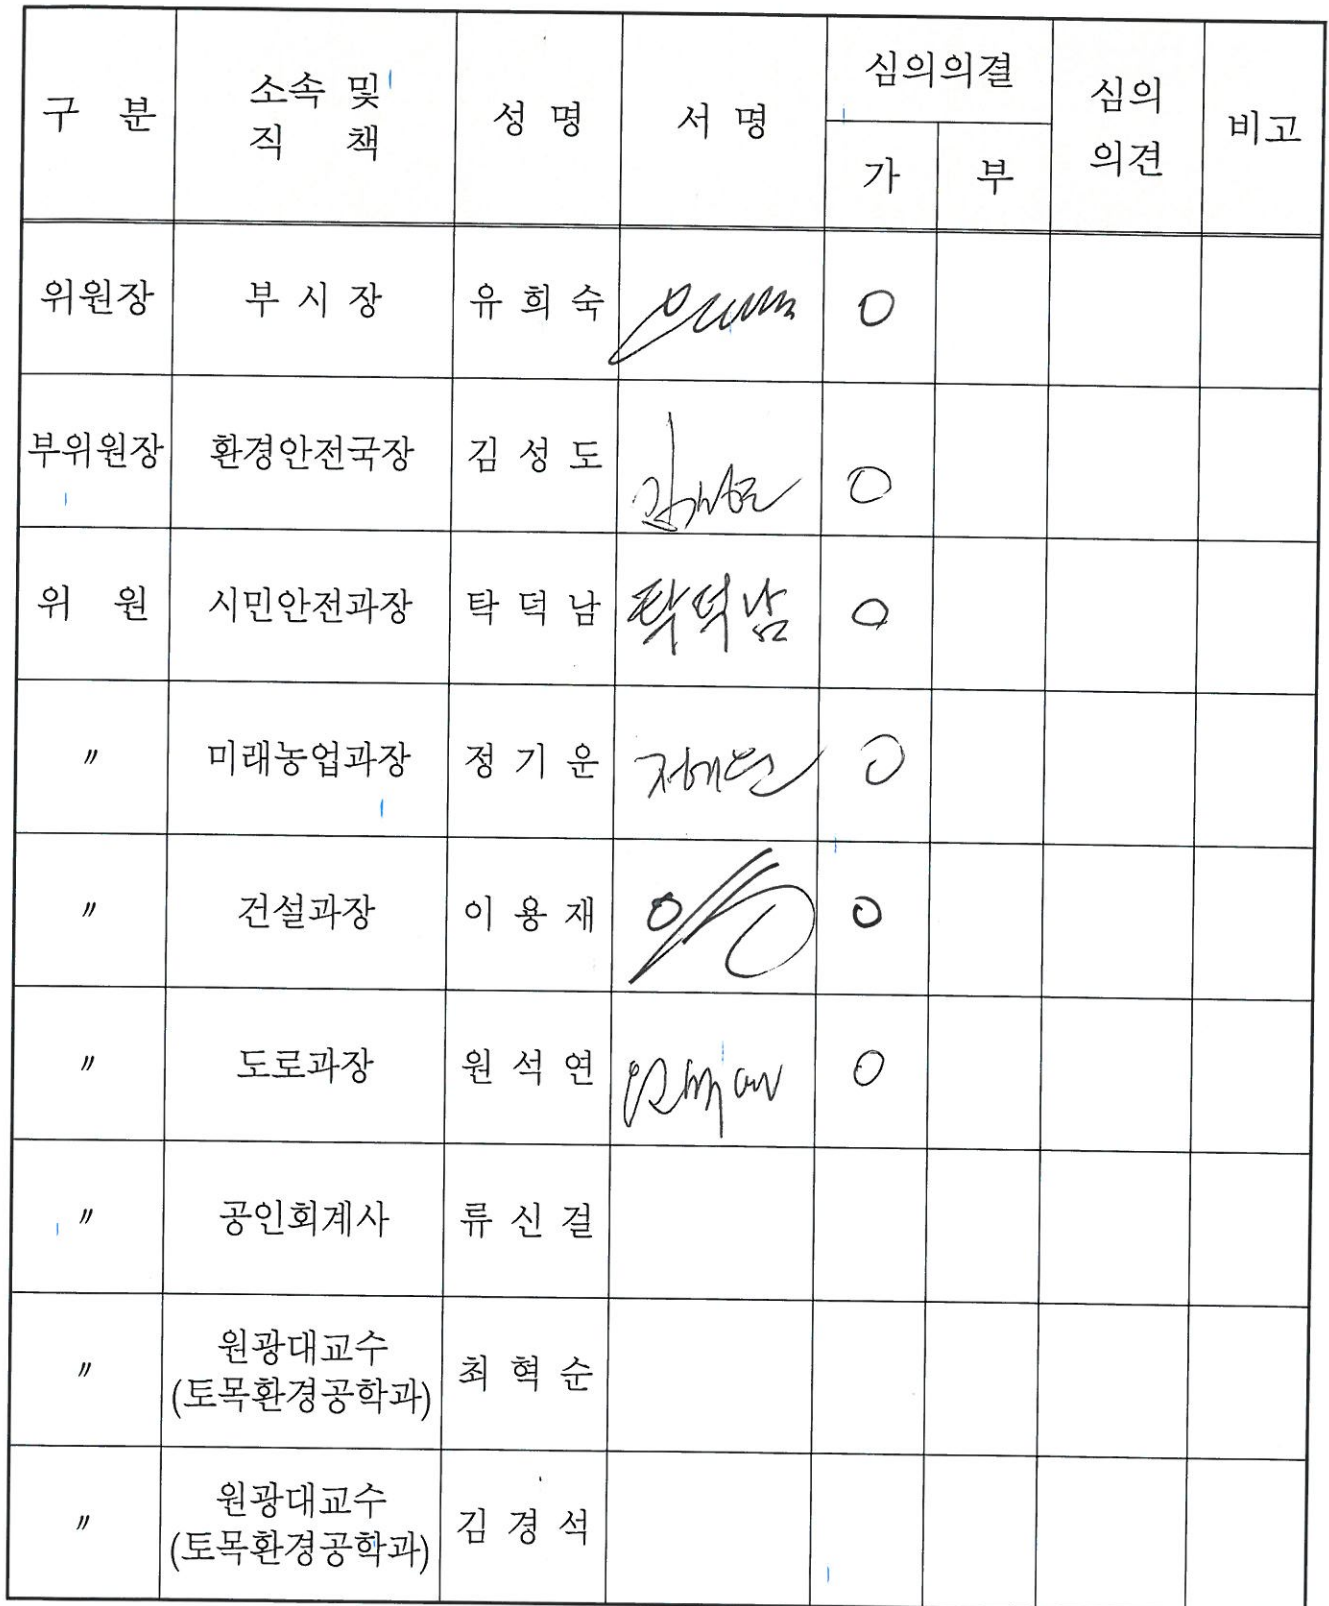 구 분 소속 및 직 책 성 명 서 명 심의의결 심의 의견 비고
가 부
위원장 부 시 장 유 희 숙 O
부위원장 환경안전국장 김 성 도 김성도 O
위 원 시민안전과장 탁 덕 남 탁덕남 O
〃 미래농업과장 정 기 운 O
〃 건설과장 이 용 재 O
〃 도로과장 원 석 연 O
〃 공인회계사 류 신 걸
〃 원광대교수 (토목환경공학과) 최 혁 순
〃 원광대교수 (토목환경공학과) 김 경 석